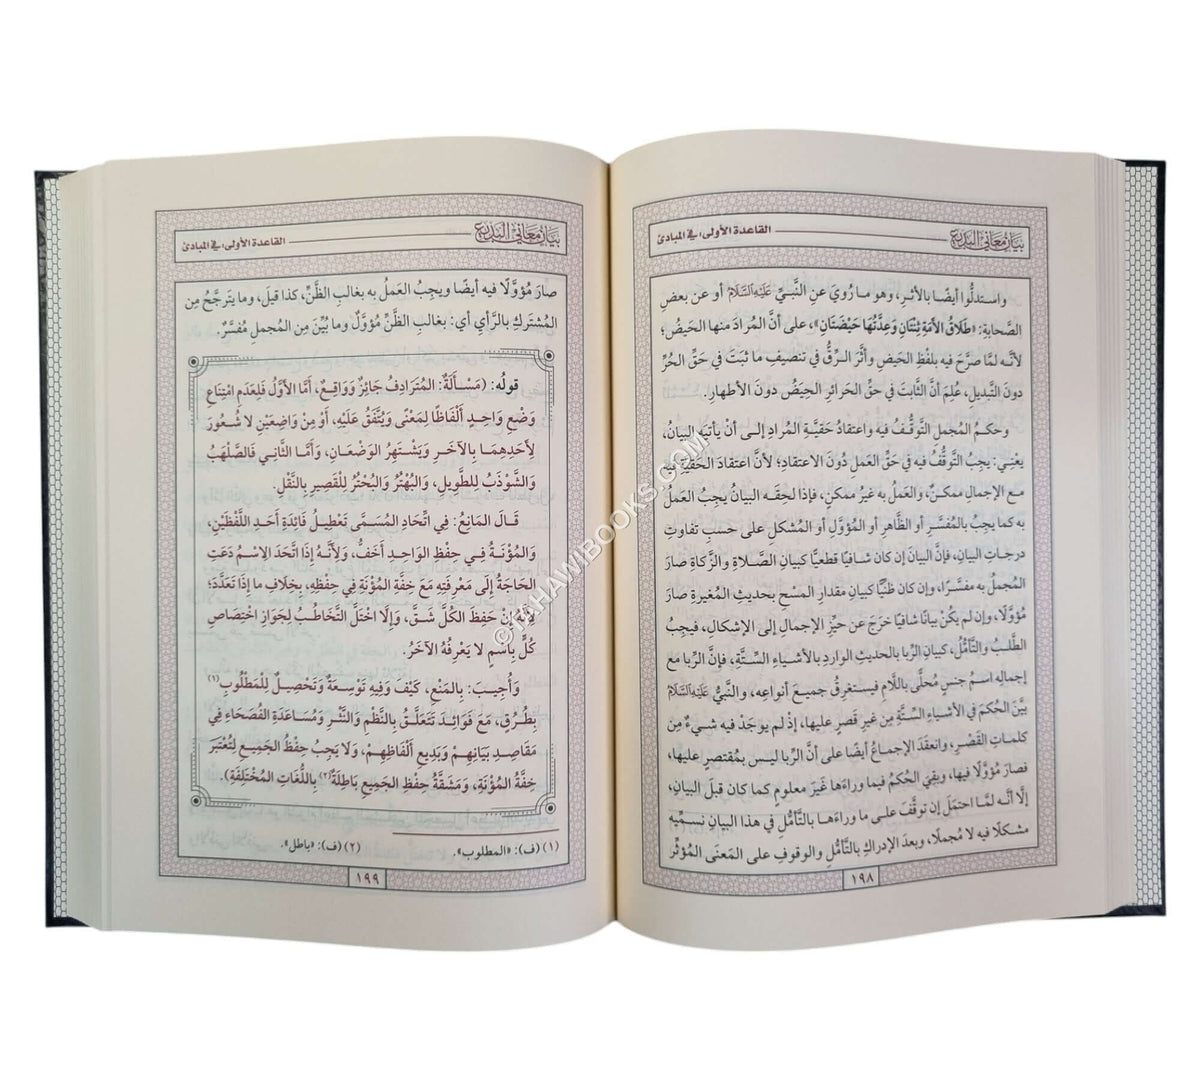 بيان معاني البديع
القاعدة الأولى، في المبادئ
واستدلُّوا أيضًا بالأثرِ، وهو ما رُويَ عنِ النَّبيِّ عَلَيْهِ السَّلَامُ أو عن بعضِ
الصَّحابةِ: «طَلَاقُ الأَمَةِ ثِنْتَانِ وَعِدَّتُهَا حَيْضَتَانِ»، على أنَّ المُرادَ منها الحَيضُ؛
لأنَّه لمَّا صرَّحَ فيه بلفظِ الحَيضِ وأثَرُ الرِّقِّ في تنصيفِ ما ثبَتَ في حَقِّ الحُرِّ
دونَ التَّبديلِ، عُلِمَ أنَّ الثَّابتَ في حَقِّ الحَرائرِ الحِيَضُ دونَ الأطهارِ.
وحكمُ المُجملِ التَّوقُّفُ فيه واعتقادُ حَقِّيَّةِ المُرادِ إلى أنْ يأتيَه البيانُ،
يعْنِي: يجبُ التَّوقُّفُ فيه في حَقِّ العَملِ دُونَ الاعتقادِ؛ لأنَّ اعتقادَ الحَقِّيَّةِ فيه
معَ الإجمالِ ممكنٌ، والعَملُ به غيرُ ممكنٍ، فإذا لحِقَه البيانُ يجِبُ العَملُ
به كما يجبُ بالمُفسَّرِ أو الظَّاهرِ أو المُؤوَّلِ أو المُشكلِ على حسبِ تفاوتِ
درجاتِ البيانِ، فإنَّ البيانَ إن كان شافيًا قطعيًّا كبيانِ الصَّلاةِ والزَّكاةِ صارَ
المُجملُ به مفسَّرًا، وإن كان ظنِّيًّا كبيانِ مقدارِ المَسحِ بحديثِ المُغيرةِ صارَ
مُؤوَّلًا، وإن لم يكُنْ بيانًا شافيًا خرَجَ عن حيِّزِ الإجمالِ إلى الإشكالِ، فيجبُ
الطَّلبُ والتَّأمُّلُ، كبيانِ الرِّبا بالحديثِ الواردِ بالأشياءِ السِّتَّةِ، فإنَّ الرِّبا مع
إجمالِه اسمُ جنسٍ مُحلًّى باللَّامِ فيستغرقُ جميعَ أنواعِه، والنَّبيُّ عَلَيْهِ السَّلَامُ
بيَّنَ الحُكمَ في الأشياءِ السِّتَّةِ مِن غيرِ قصرٍ عليها، إذ لم يوجَدْ فيه شيءٌ مِن
كلماتِ القَصْرِ، وانعقدَ الإجماعُ أيضًا على أنَّ الرِّبا ليس بمُقتصرٍ عليها،
فصارَ مؤوَّلًا فيها، وبقِيَ الحُكمُ فيما وراءَها غيرَ معلومٍ كما كان قبلَ البيانِ،
إلَّا أنَّه لمَّا احتملَ إن توقَّفَ على ما وراءَها بالتَّأمُّلِ في هذا البيانِ نسمِّيه
مشكلًا فيه لا مُجملًا، وبعدَ الإدراكِ بالتَّأمُّلِ والوقوفِ على المَعنى المُؤثِّرِ
١٩٨
بيان معاني البديع
القاعدة الأولى، في المبادئ
صارَ مؤوَّلًا فيه أيضًا ويجبُ العَملُ به بغالبِ الظَّنِّ، كذا قيلَ، وما يترجَّحُ مِن
المُشتركِ بالرَّأيِ أي: بغالبِ الظَّنِّ مؤولٌ وما بُيِّنَ مِن المجملِ مُفسَّرٌ.
قولُه: (مَسْأَلَةٌ: المُتَرَادِفُ جَائِزٌ وَوَاقِعٌ، أَمَّا الأَوَّلُ فَلِعَدَمِ امْتِنَاعِ
وَضْعِ وَاحِدٍ أَلْفَاظًا لِمَعْنًى وَيُتَّفَقُ عَلَيْهِ، أَوْ مِنْ وَاضِعَيْنِ لَا شُعُورَ
لِأَحَدِهِمَا بِالآخَرِ وَيَشْتَهِرُ الوَضْعَانِ، وَأَمَّا الثَّانِي فَالصَّلْهَبُ
وَالشَّوْذَبُ لِلطَّوِيلِ، وَالبُهْتُرُ وَالبُحْتُرُ لِلْقَصِيرِ بِالنَّقْلِ.
قَالَ المَانِعُ: فِي اتِّحَادِ المُسَمَّى تَعْطِيلُ فَائِدَةِ أَحَدِ اللَّفْظَيْنِ،
وَالمُؤْنَةُ فِي حِفْظِ الوَاحِدِ أَخَفُّ، وَلِأَنَّهُ إِذَا اتَّحَدَ الِاسْمُ دَعَتِ
الحَاجَةُ إِلَى مَعْرِفَتِهِ مَعَ خِفَّةِ المُؤْنَةِ فِي حِفْظِهِ، بِخِلَافِ مَا إِذَا تَعَدَّدَ؛
لِأَنَّهُ إِنْ حَفِظَ الكُلَّ شَقَّ، وَإِلَّا اخْتَلَّ التَّخَاطُبُ لِجَوَازِ اخْتِصَاصِ
كُلٍّ بِاسْمٍ لَا يَعْرِفُهُ الآخَرُ.
وَأُجِيبَ: بِالمَنْعِ، كَيْفَ وَفِيهِ تَوْسِعَةٌ وَتَحْصِيلٌ لِلْمَطْلُوبِ(١)
بِطُرُقٍ، مَعَ فَوَائِدَ تَتَعَلَّقُ بِالنَّظْمِ وَالنَّثْرِ وَمُسَاعَدَةِ الفُصَحَاءِ فِي
مَقَاصِدِ بَيَانِهِمْ وَبَدِيعِ أَلْفَاظِهِمْ، وَلَا يَجِبُ حِفْظُ الجَمِيعِ لِتُعْتَبَرَ
خِفَّةُ المُؤْنَةِ، وَمَشَقَّةُ حِفْظِ الجَمِيعِ بَاطِلَةٌ(٢) بِاللُّغَاتِ المُخْتَلِفَةِ).
(١) (ف): «المطلوب». (٢) (ف): «باطل».
١٩٩
©TAHAWIBOOKS.COM